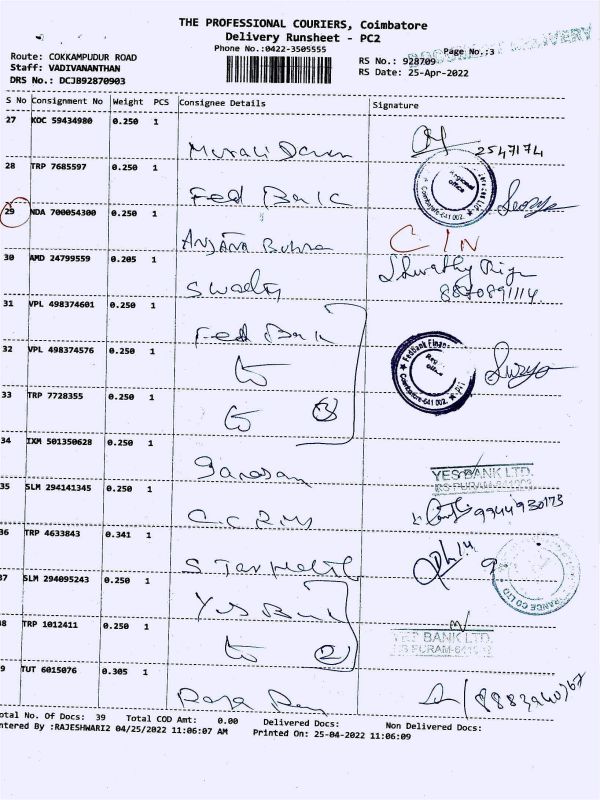 THE PROFESSIONAL COURIERS, Coimbatore
Delivery Runsheet - PC2
Phone No.:0422-3505555
Page No.:3
DELIVERY
Route: COKKAMPUDUR ROAD
Staff: VADIVANANTHAN
DRS No.: DCJB92870903
RS No.: 928709
RS Date: 25-Apr-2022
S No Consignment No Weight PCS Consignee Details Signature
27 KDC 59434980 0.250 1
2547174
28 TRP 7685597 0.250 1
Fed Bank
Regional office
Coimbatore-641 002.
29 NDA 700054300 0.250 1
C/N
30 AMD 24799559 0.205 1
Swathy
8870891114
31 VPL 498374601 0.250 1
Fed Bank
32 VPL 498374576 0.250 1
FedBank Financ
Reg
office
Coimbatore-641 002.
33 TRP 7728355 0.250 1
3
34 IXM 501350628 0.250 1
YES BANK LTD
RS PURAM-641002
35 SLM 294141345 0.250 1
9944930173
36 TRP 4633843 0.341 1
RANCE CO LTD
37 SLM 294095243 0.250 1
Yes Bank
38 TRP 1012411 0.250 1
2
YES BANK LTD.
RS PURAM-6410
39 TUT 6015076 0.305 1
Total No. Of Docs: 39 Total COD Amt: 0.00 Delivered Docs: Non Delivered Docs:
Entered By :RAJESHWARI2 04/25/2022 11:06:07 AM Printed On: 25-04-2022 11:06:09